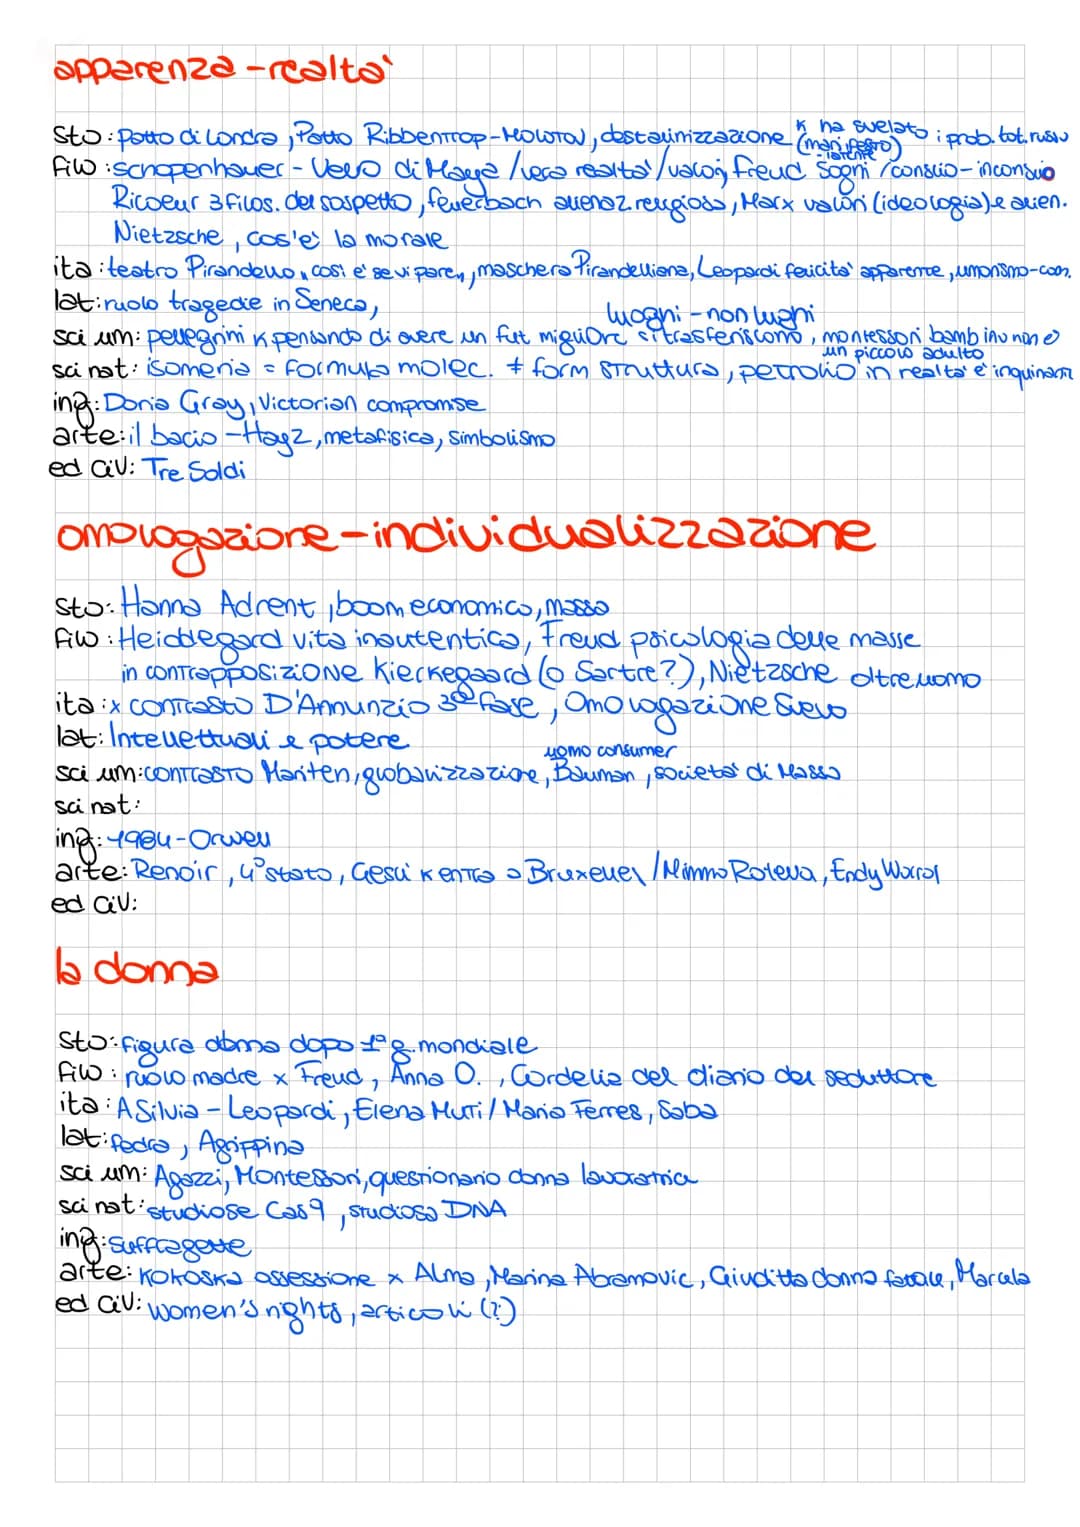 apparenza - realtà
sto: Patto di Londra, Patto Ribbentrop-Molotov, destalinizzazione k ha svelato i prob. tot. russo
filo: schopenhauer - Velo di Maya / vera realtà / valori, freud sogni (manifesto - latente) / conscio - inconscio
Ricoeur 3 filos. del sospetto, feuerbach alienaz. religiosa, Marx valori (ideologia) e alien.
Nietzsche, cos'è la morale
ita: teatro Pirandello, così è se vi pare, maschera Pirandelliana, Leopardi felicità apparente, umorismo-com.
lat: ruolo tragedie in Seneca,
luoghi - non luoghi
sci um: pellegrini k pensando di avere un fut migliore si trasferiscono, montessori bambino non è un piccolo adulto
sci nat: isomeria = formula molec. ≠ form struttura, petrolio in realtà è inquinante
ing: Doria Gray, Victorian compromise
arte: il bacio - Hayez, metafisica, simbolismo
ed civ: Tre Soldi
omologazione - individualizzazione
sto: Hanna Adrent, boom economico, massa
filo: Heiddegard vita inautentica, Freud psicologia delle masse
in contrapposizione Kierkegaard (o Sartre?), Nietzsche oltreuomo
ita: x contrasto D'Annunzio 3ª fase, Omologazione Svevo
lat: Intellettuali e potere
uomo consumer
sci um: contrasto Mariten, globalizzazione, Bauman, società di Massa
sci nat:
ing: 1984 - Orwell
arte: Renoir, 4° stato, Gesù k entra a Bruxelles / Mimmo Rotella, Endy Warol
ed civ:
la donna
sto: figura donna dopo 1ª g. mondiale
filo: ruolo madre x Freud, Anna O., Cordelia del diario del seduttore
ita: A Silvia - Leopardi, Elena Muti / Maria Ferres, Saba
lat: fedra, Agrippina
sci um: Agazzi, Montessori, questionario donna lavoratrice
sci nat: studiose Cas9, studiosa DNA
ing: suffragette
arte: Kokoska ossessione x Alma, Marina Abramovic, Giuditta donna fatale, Marcela
ed civ: women's rights, articoli (?)